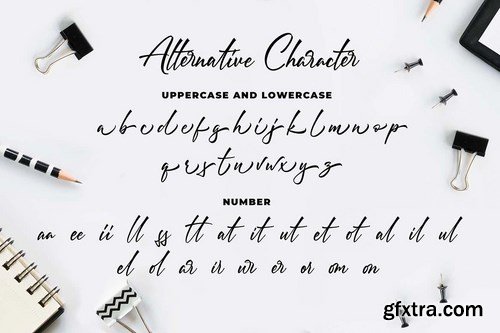 Alternative Character
UPPERCASE AND LOWERCASE
a b c d e f g h i j k l m n o p
q r s t u v w x y z
NUMBER
aa ee ii ll ss tt at it ut et ot al il ul
el ol ar ir ur er or om on
gfxtra.com